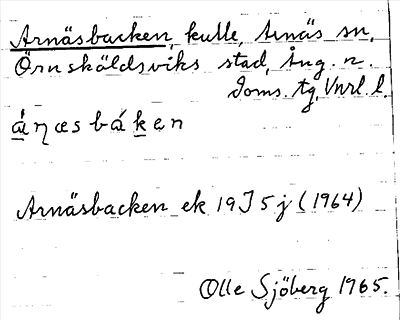 Arnäsbacken, kulle, Arnäs sn,
Örnsköldsviks stad, Ång. n.
Doms. tg, Vnrl. l.
áŋæsbáken
Arnäsbacken ek 19J5j (1964)
Olle Sjöberg 1965.